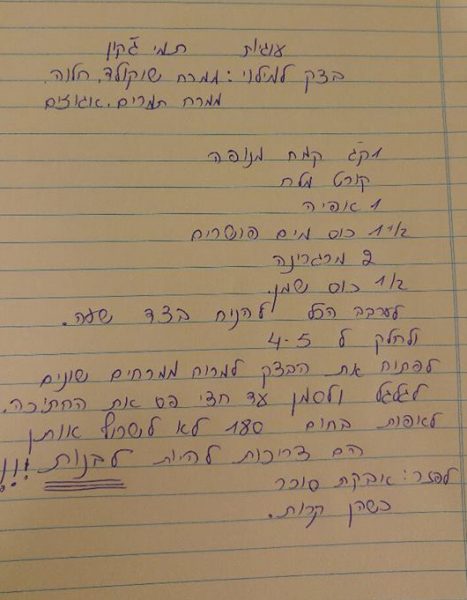 עוגיות תמי ג'קין
בצק למילוי: ממרח שוקולד, חלוה,
ממרח תמרים, אגוזים
1 ק"ג קמח מנופה
קורט מלח
1 אפיה
1-½ כוס מים פושרים
2 מרגרינה
½ כוס שמן.
לערבב הכל להניח בצד שעה.
ולחלק ל 4-5
לפתוח את הבצק למרוח ממרחים שונים
לגלגל ולסמן עד חצי פס את החתיכה.
לאפות בחום 180 לא לשרוף אותן
הם צריכות להיות לבנות!!!
לפזר: אבקת סוכר
כשהן קרות.